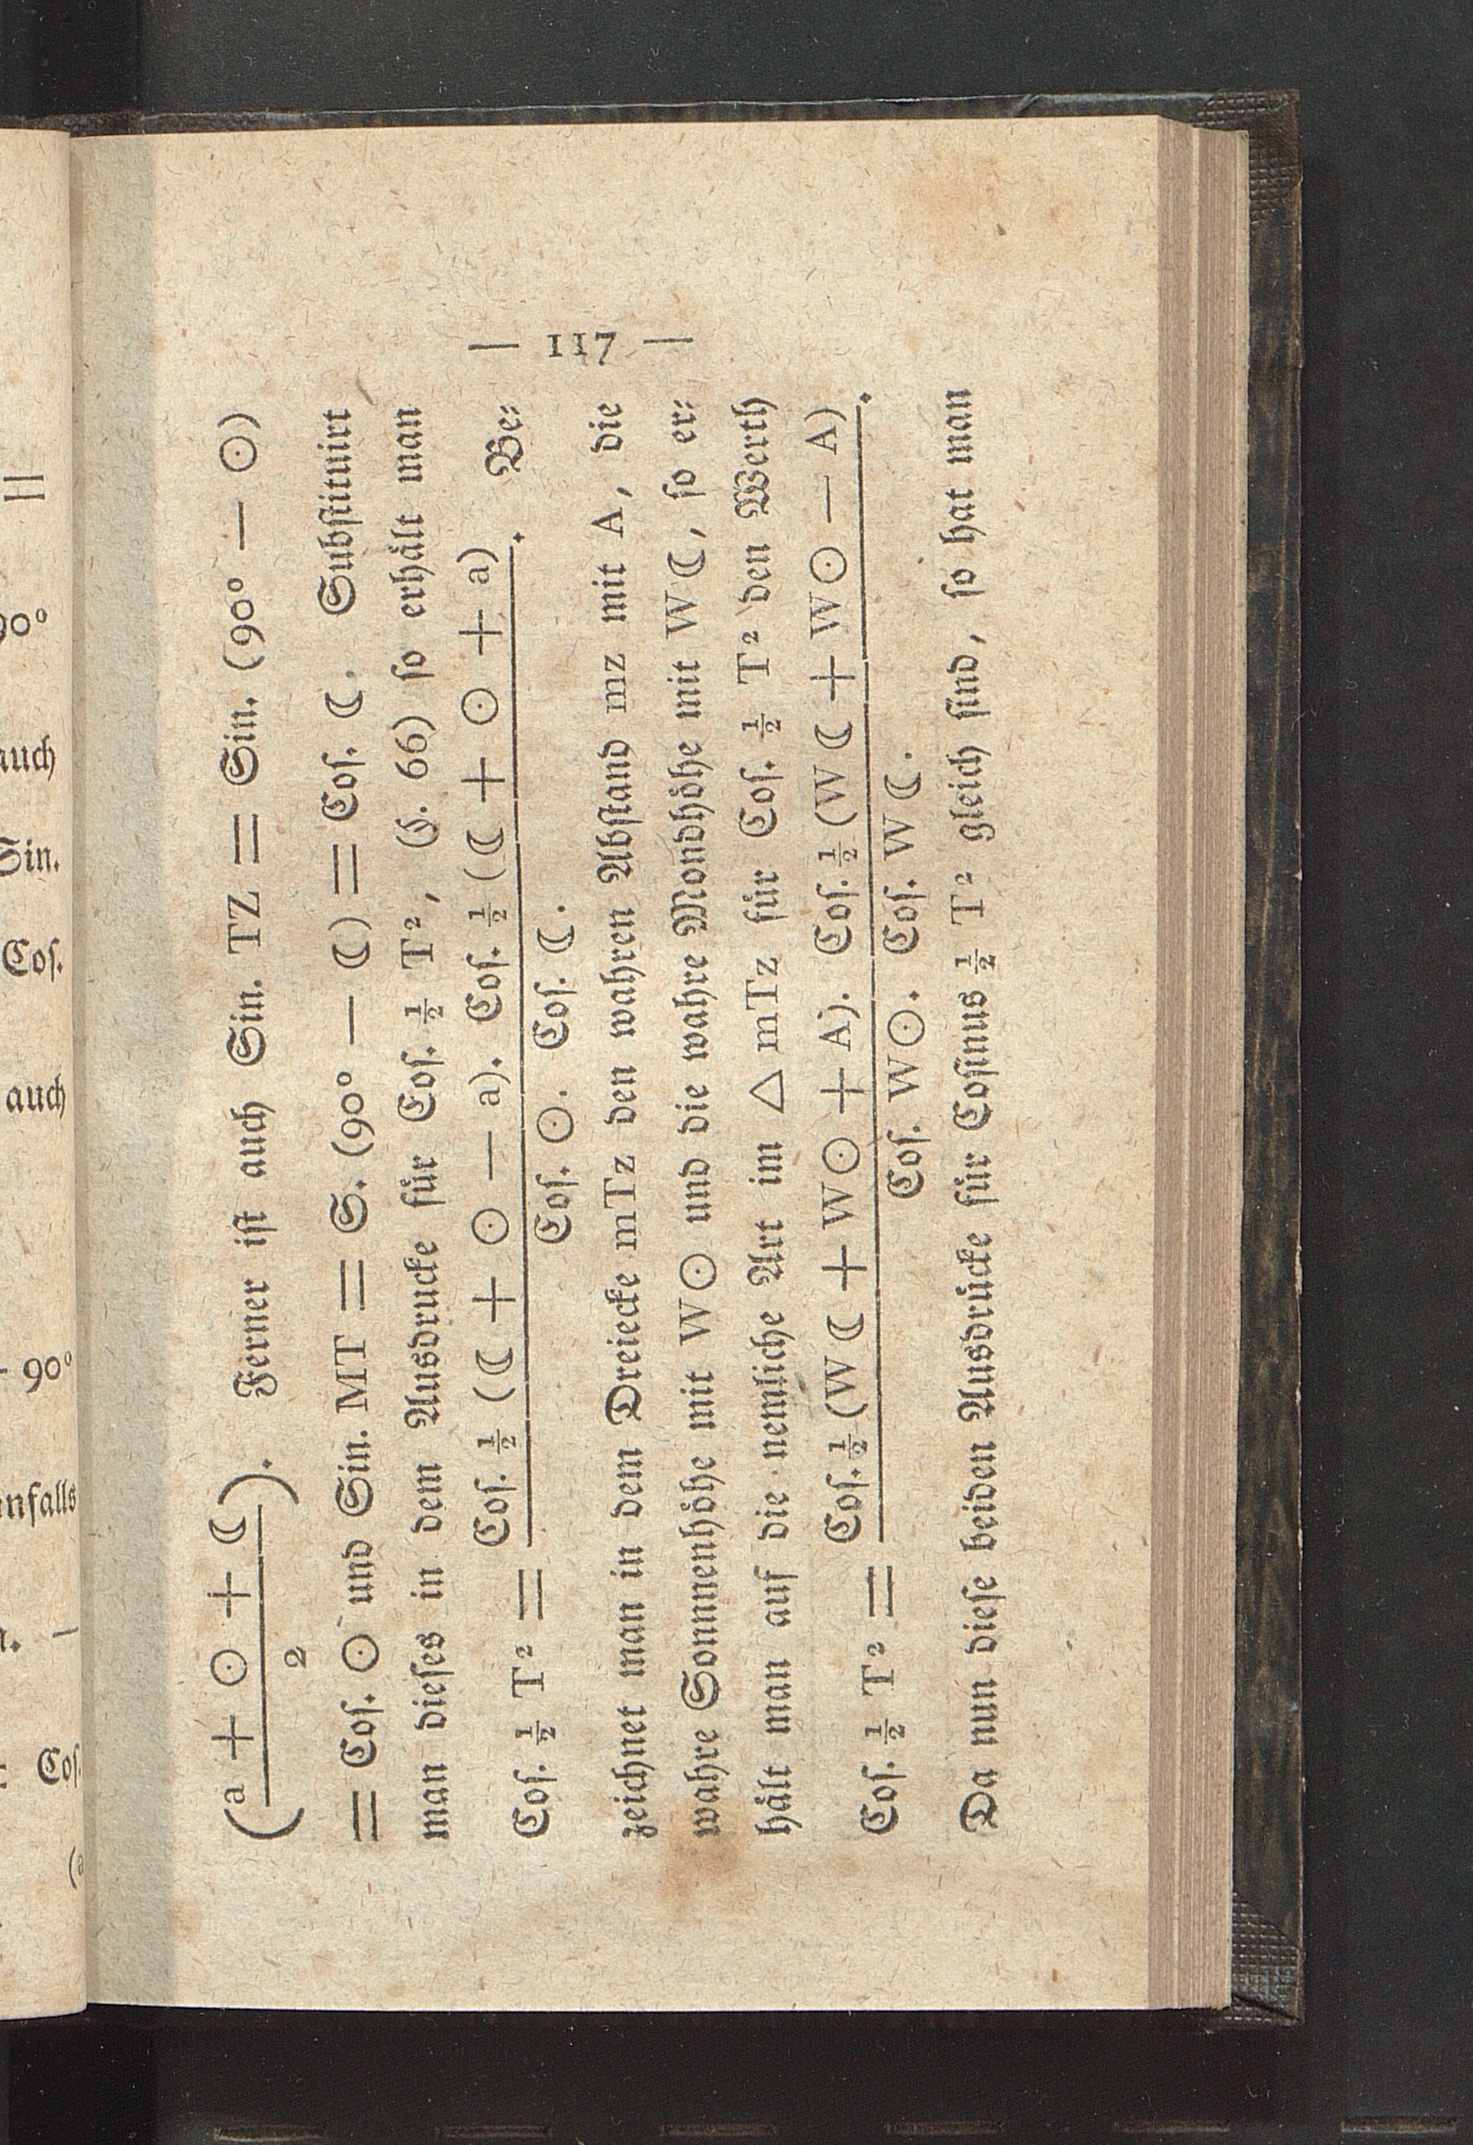 — 117 —
(a + ☉ + ☾)/2). Ferner ist auch Sin. TZ = Sin. (90° — ☉)
= Cos. ☉ und Sin. MT = S. (90° — ☾) = Cos. ☾. Substituirt
man dieses in dem Ausdrucke für Cos. ½ T², (S. 66) so erhält man
Cos. ½ T² = Cos. ½ (☾ + ☉ — a). Cos. ½ (☾ + ☉ + a). Be⸗
Cos. ☉. Cos. ☾.
zeichnet man in dem Dreiecke mTz den wahren Abstand mz mit A, die
wahre Sonnenhöhe mit W☉ und die wahre Mondhöhe mit W☾, so er⸗
hält man auf die nemliche Art im △ mTz für Cos. ½ T² den Werth
Cos. ½ T² = Cos. ½ (W☾ + W☉ + A). Cos. ½ (W☾ + W☉ — A).
Cos. W☉. Cos. W☾.
Da nun diese beiden Ausdrücke für Cosinus ½ T² gleich sind, so hat man
90°
auch
Sin.
Cos.
auch
90°
enfalls
Cos.